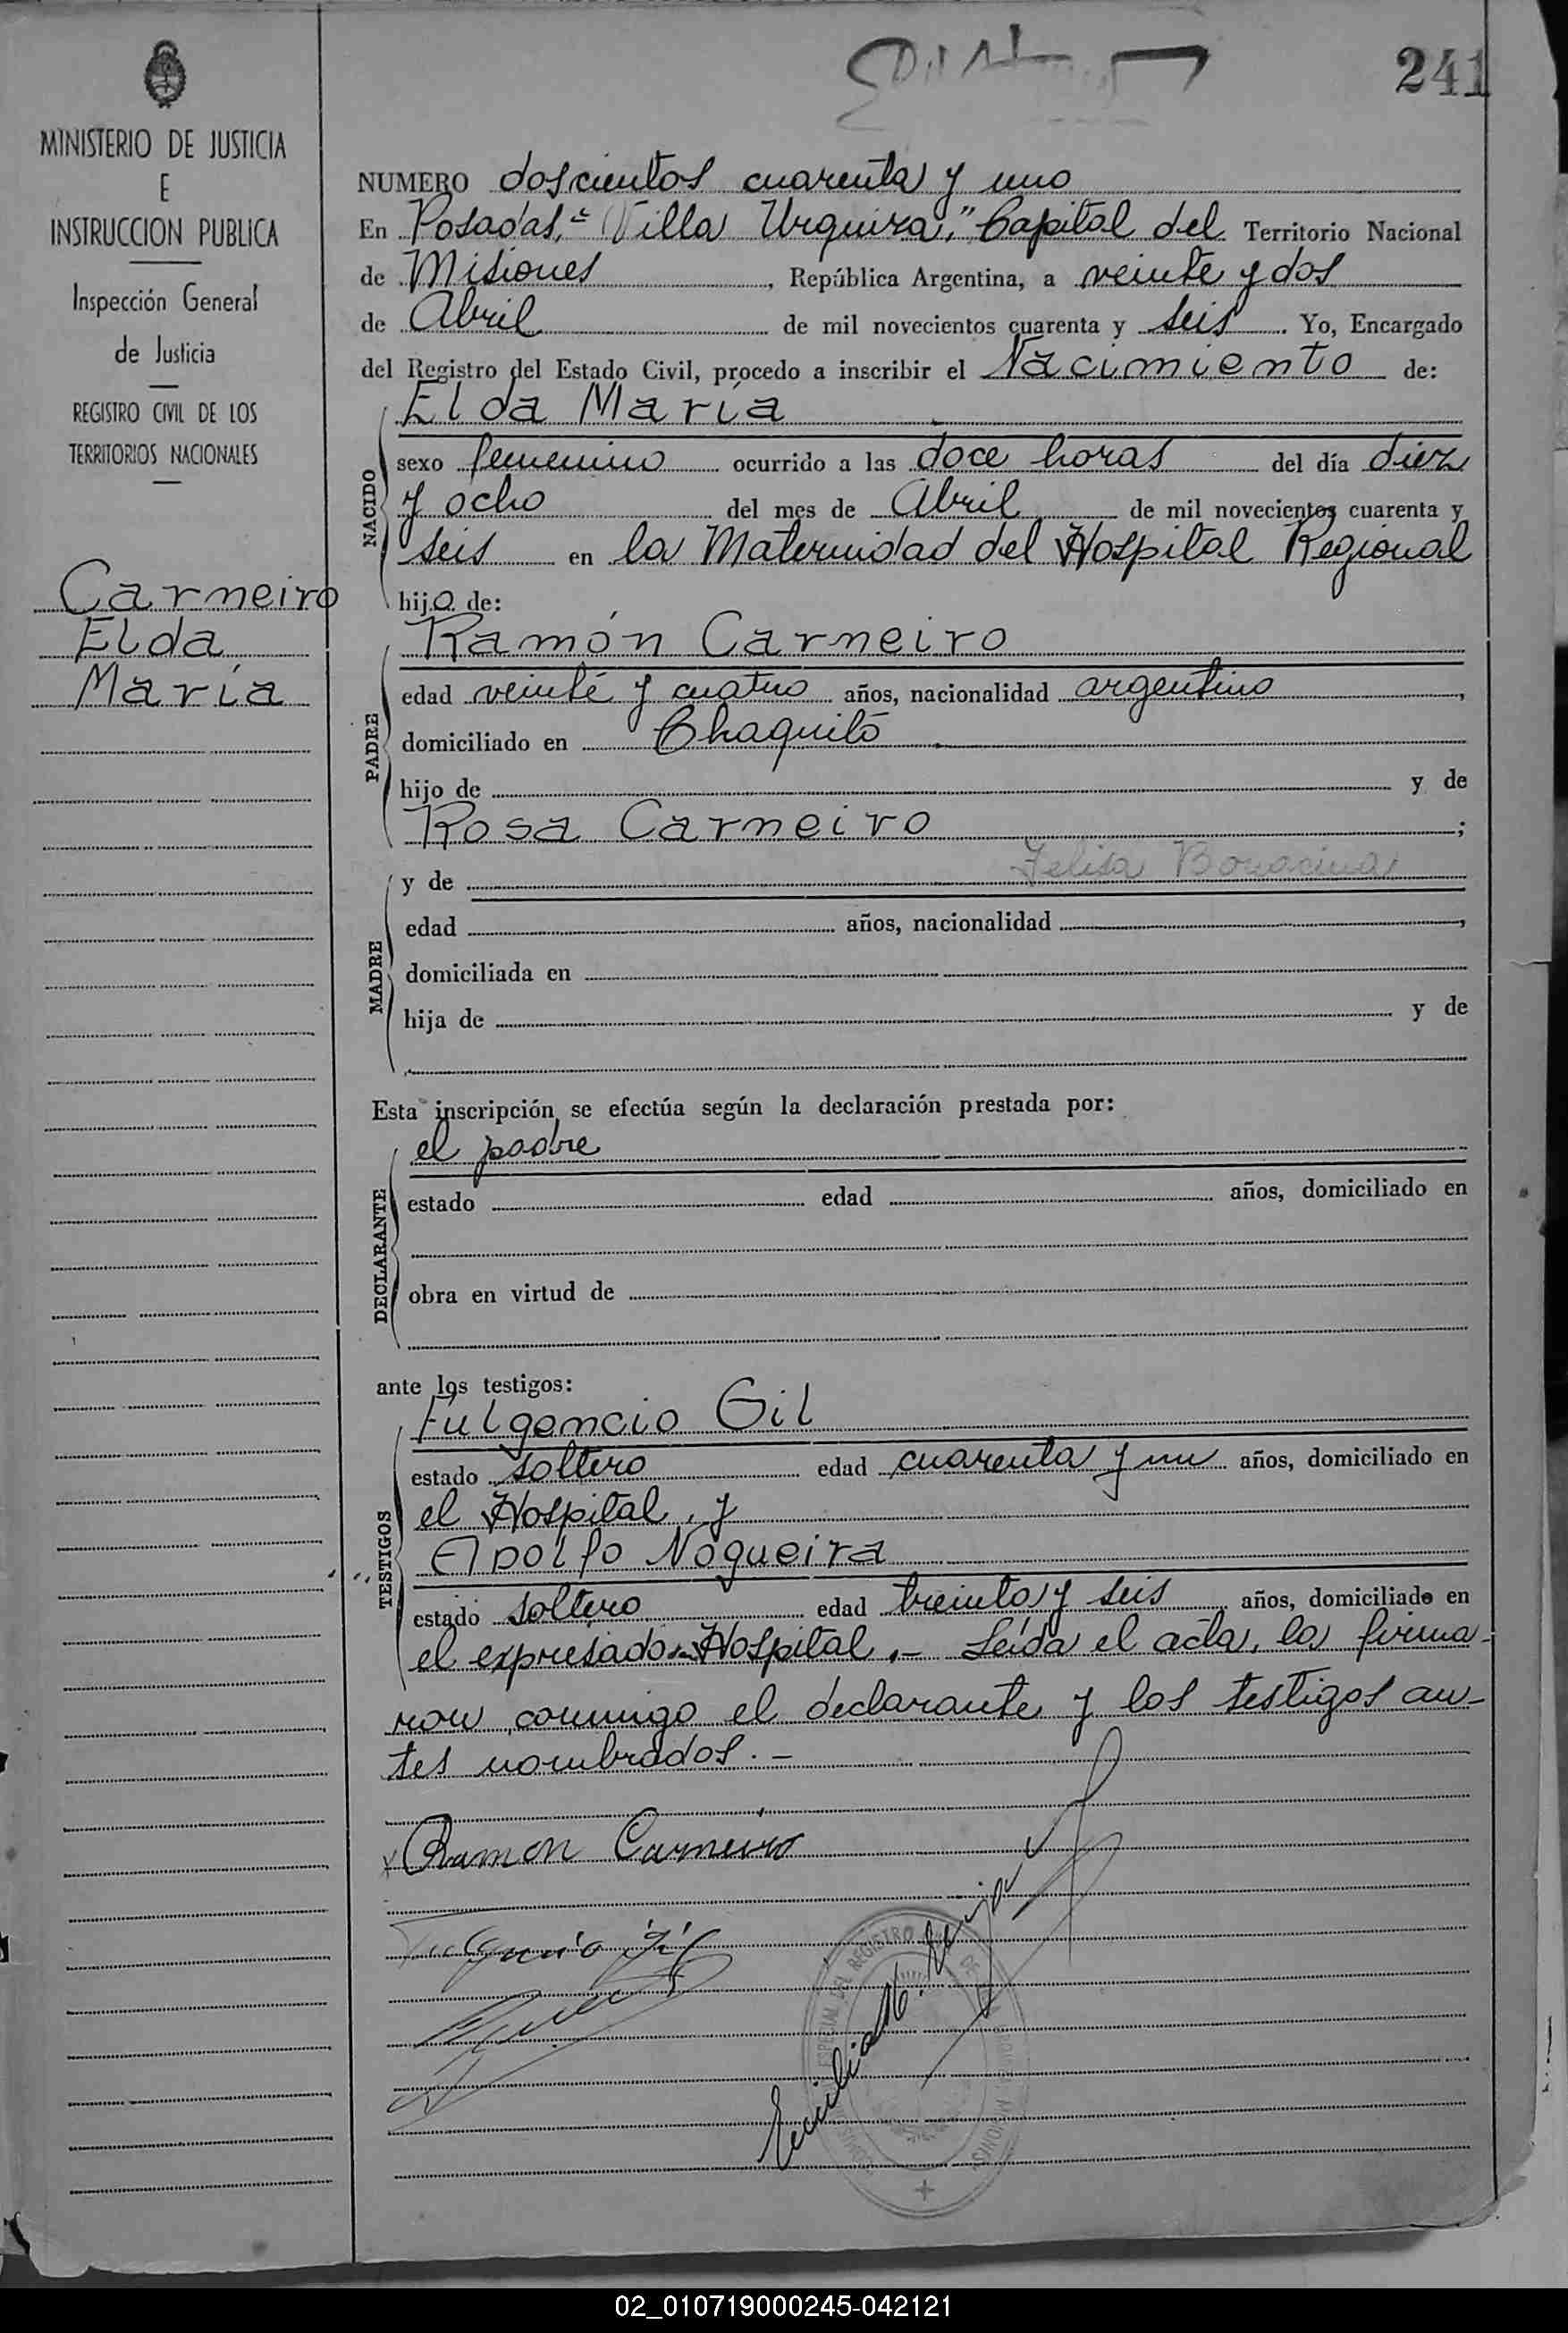 241
MINISTERIO DE JUSTICIA
E
INSTRUCCION PUBLICA
Inspección General
de Justicia
REGISTRO CIVIL DE LOS
TERRITORIOS NACIONALES
Carneiro
Elda
María
NUMERO doscientos cuarenta y uno
En Posadas, "Villa Urquiza," Capital del Territorio Nacional
de Misiones, República Argentina, a veinte y dos
de Abril de mil novecientos cuarenta y seis. Yo, Encargado
del Registro del Estado Civil, procedo a inscribir el Nacimiento de:
NACIDO
Elda María
sexo femenino ocurrido a las doce horas del día diez
y ocho del mes de Abril de mil novecientos cuarenta y
seis en la Maternidad del Hospital Regional
hija de:
PADRE
Ramón Carneiro
edad veinte y cuatro años, nacionalidad argentino,
domiciliado en Chaquito
hijo de y de
Rosa Carneiro;
MADRE
y de Felisa Bonacina
edad años, nacionalidad,
domiciliada en
hija de y de
Esta inscripción se efectúa según la declaración prestada por:
DECLARANTE
el padre
estado edad años, domiciliado en
obra en virtud de
ante los testigos:
TESTIGOS
Fulgencio Gil
estado soltero edad cuarenta y un años, domiciliado en
el Hospital, y
Adolfo Nogueira
estado soltero edad treinta y seis años, domiciliado en
el expresado Hospital.- Leída el acta, la firma-
ron conmigo el declarante y los testigos an-
tes nombrados.-
Ramon Carneiro
Fulgencio Gil
Emilia M.
REGISTRO
02_010719000245-042121